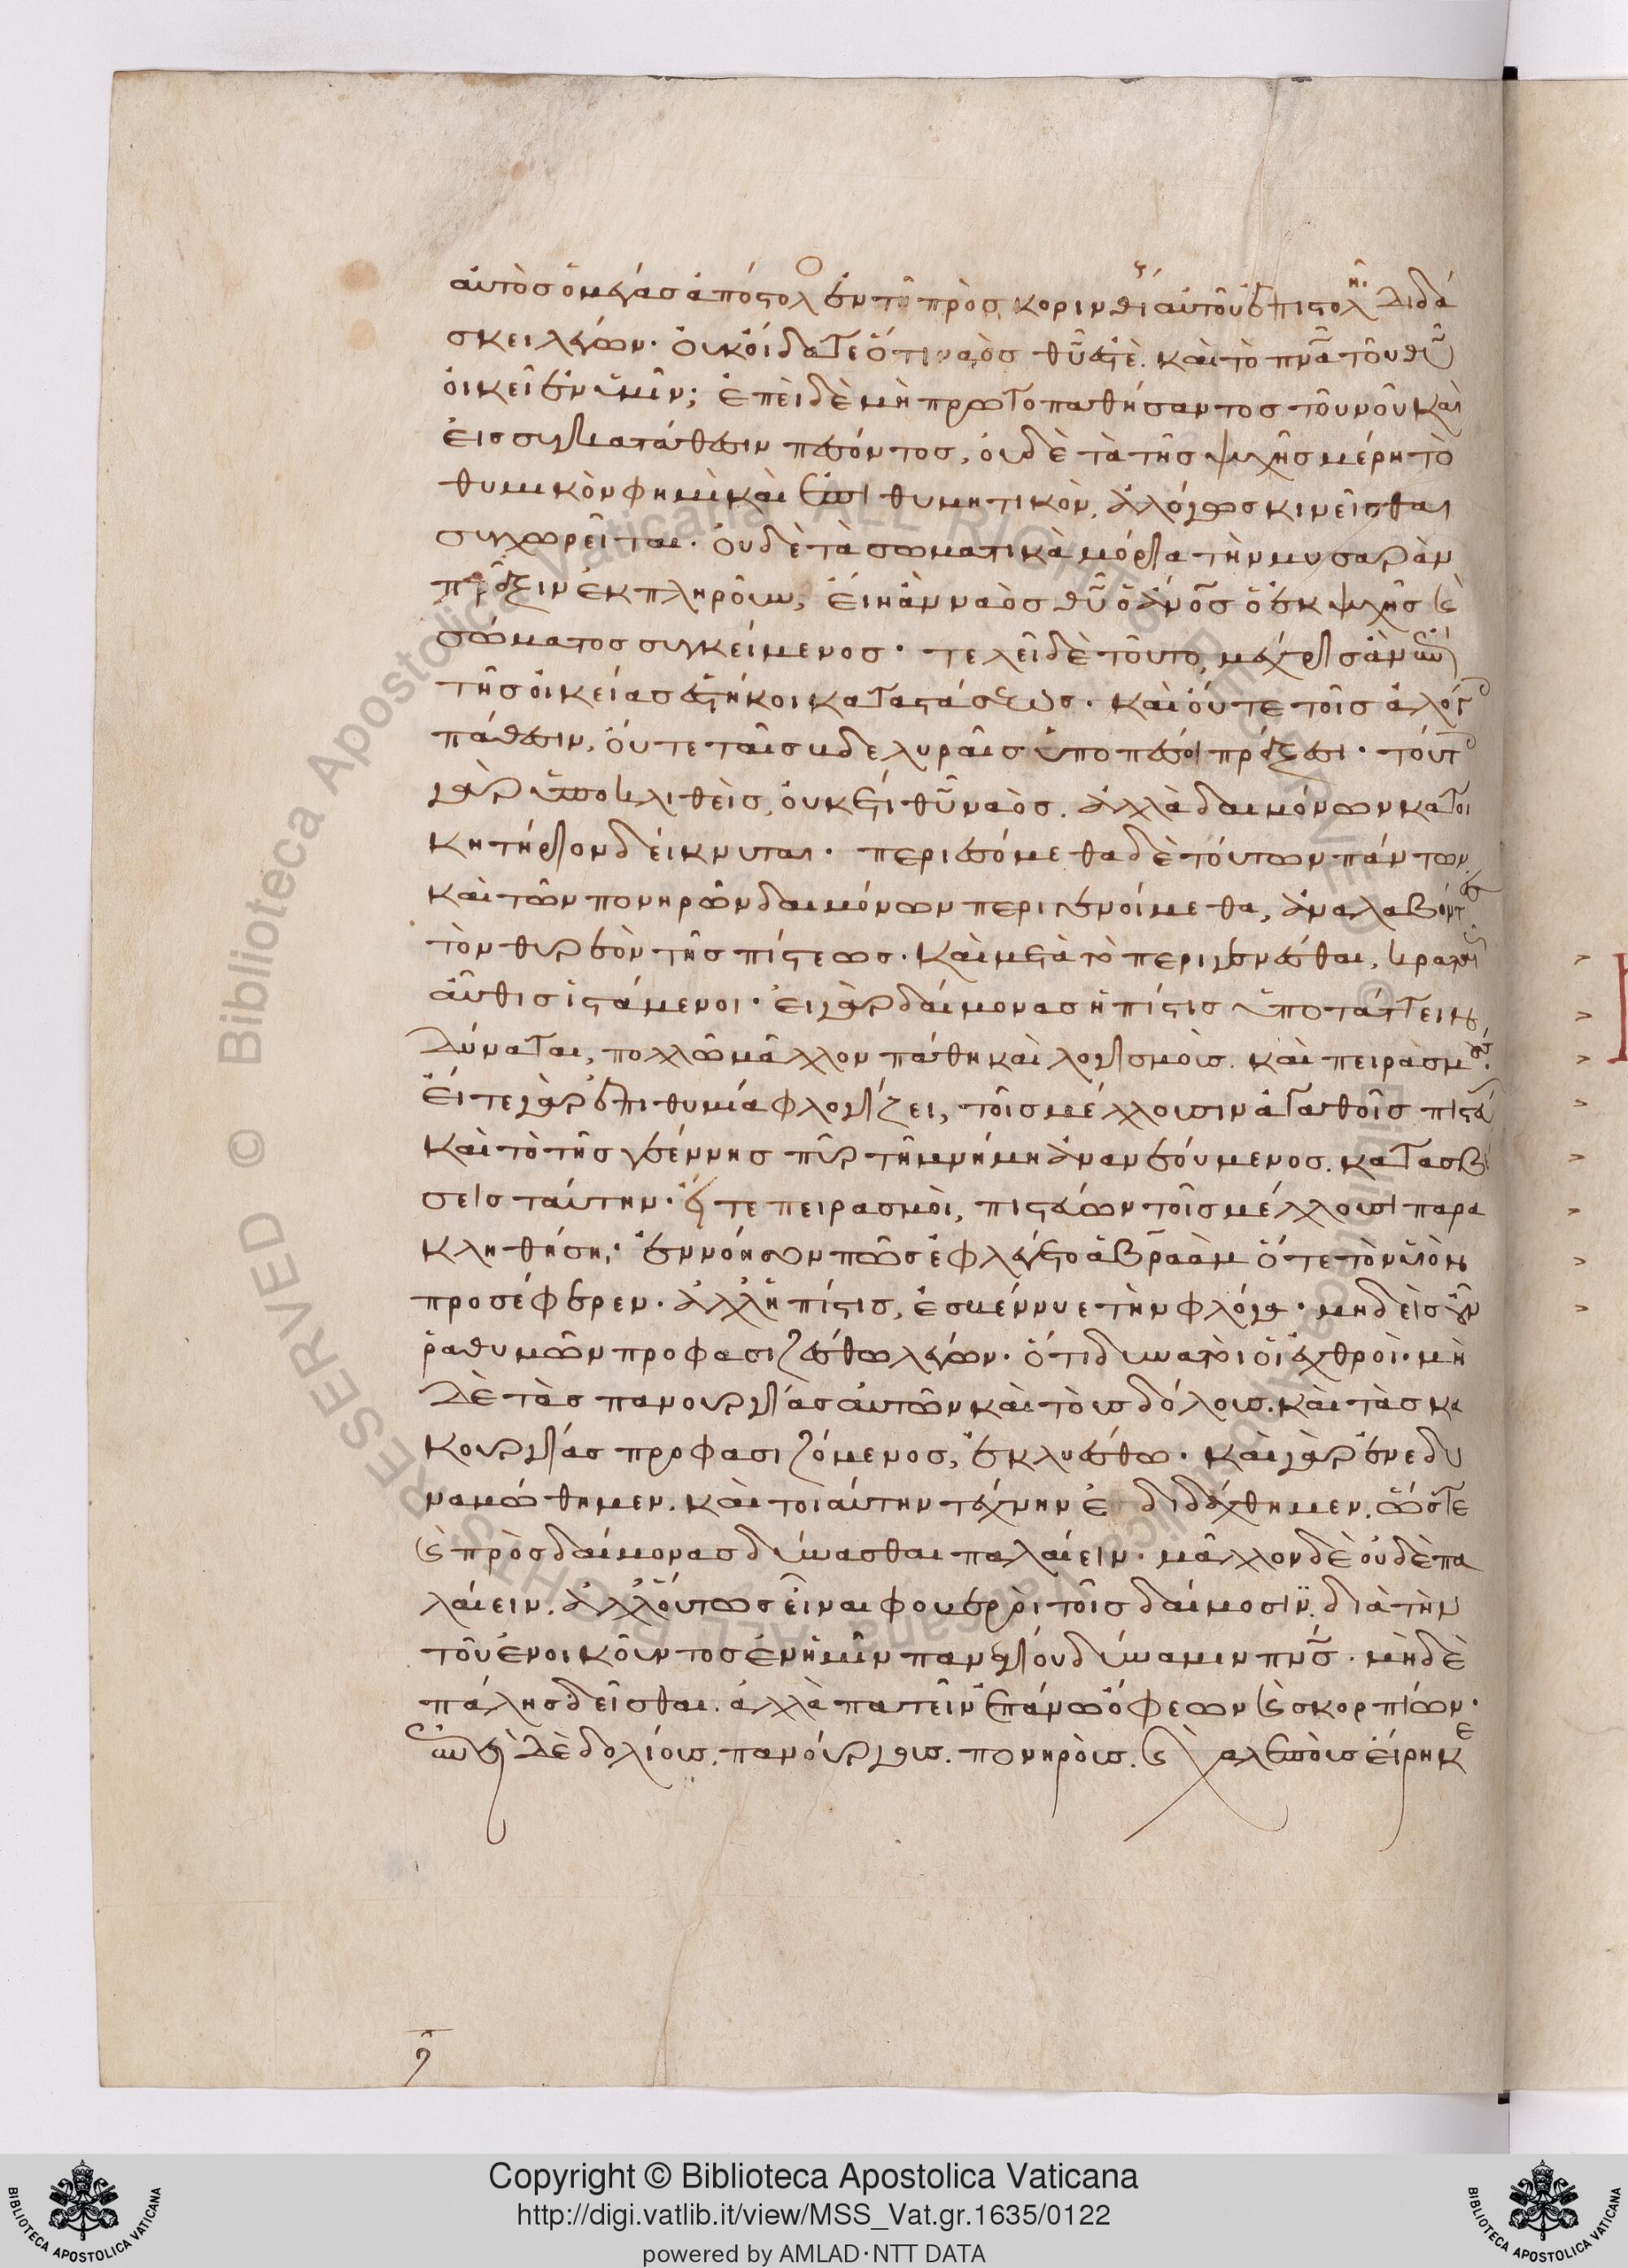 αὐτὸς ὁ μέγας ἀπόστολο ἐν τῆ πρὸς κορινθί αὐτοῦ ἐπιστολῆ. διδά
σκει λέγων· οὐκ οἴδατε ὅτι ναὸς θῦ ἐστὲ. καὶ τὸ πνᾶ τοῦ θῦ
οἰκεῖ ἐν ὑμῖν; ἐπεὶ δὲ μὴ πρωτοπαθήσαντος τοῦ νοῦ καὶ
εἰς συγκατάθεσιν πεσόντος, οὐδὲ τὰ τῆς ψυχῆς μέρη τὸ
θυμικὸν φημὶ καὶ ἐπιθυμητικὸν, ἀλόγως κινεῖσθαι
συγχωρεῖται· οὐδὲ τὰ σωματικὰ μόρια τὴν μυσαρὰν
πρᾶξιν ἐκπληροῦν, εἴη ἂν ναὸς θῦ ὁ ἄνος ὁ ἐκ ψυχῆς καὶ
σώματος συγκείμενος· τελεῖ δὲ τοῦτο, μέχρις ἂν
τῆς οἰκείας στήκοι καταστάσεως· καὶ οὔτε τοῖς ἀλόγ
πάθεσιν, οὔτε ταῖς βδελυραῖς ὑποπέσοι πράξεσι· τούτ
γὰρ ὑποβληθεὶς, οὐκέτι θῦ ναὸς. ἀλλὰ δαιμόνων κατοι
κητήριον δείκνυται· περιεσόμεθα δὲ τούτων πάντων,
καὶ τῶν πονηρῶν δαιμόνων περιγενοίμεθα, ἀναλαβόντες
τὸν θυρεὸν τῆς πίστεως· καὶ μετὰ τὸ περιγενέσθαι,
αὖθις ἱστάμενοι· εἰ γὰρ δαίμονας ἡ πίστις ὑποτάττειν
δύναται, πολλῶ μᾶλλον πάθη καὶ λογισμοὺς. καὶ πειρασμούς.
εἴτε γὰρ ἐπιθυμία φλογίζει, τοῖς μέλλουσιν ἀγαθοῖς
καὶ τὸ τῆς γεέννης πῦρ τῆ μνήμη ἀνανεούμενος. κατασβέ
σεις ταύτην· εἴτε πειρασμοὶ, πιστεύων τοῖς μέλλουσι παρα
κληθήση· ἐννόησον πῶς ἐφλέγετο ἀβραὰμ ὅτε τὸν υἱὸν
προσέφερεν· ἀλλ' ἡ πίστις, ἐσβέννυε τὴν φλόγα· μηδεὶς οὖν
ῥαθυμῶν προφασιζέσθω λέγων· ὅτι δυνατοὶ οἱ ἐχθροὶ· μὴ
δὲ τὰς πανουργίας αὐτῶν καὶ τοὺς δόλους. καὶ τὰς κα
κουργίας προφασιζόμενος, ἐκλυέσθω· καὶ γὰρ ἐνεδυ
ναμώθημεν. καὶ τοιαύτην τέχνην ἐδιδάχθημεν. ὥστε
καὶ πρὸς δαίμονας δύνασθαι παλαίειν· μᾶλλον δὲ οὐδὲ πα
λαίειν. ἀλλ' οὕτως εἶναι φοβεροὶ τοῖς δαίμοσιν. διὰ τὴν
τοῦ ἐνοικοῦντος ἐν ἡμῖν παναγίου δύναμιν πνς· μηδὲ
πάλης δεῖσθαι. ἀλλὰ πατεῖν ἐπάνω ὄφεων καὶ σκορπίων·
δὲ δολίους, πανούργους. πονηροὺς. καὶ χαλεποὺς εἴρηκε